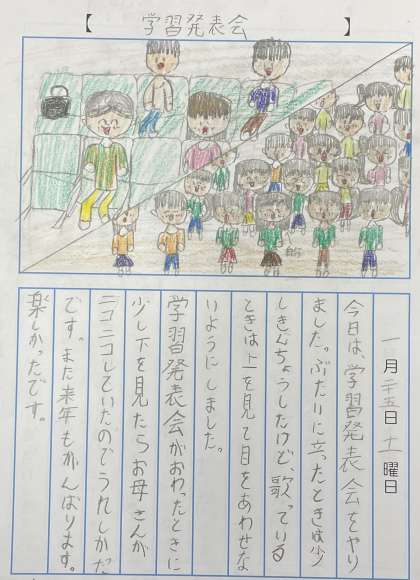 【学習発表会】
一月二十五日土曜日
今日は、学習発表会をやり
ました。ぶたいに立ったときは少
しきんちょうしたけど、歌っている
ときは上を見て目をあわせな
いようにしました。
学習発表会がおわったときに
少し下を見たらお母さんが
ニコニコしていたのでうれしかた
です。また来年もがんばります。
楽しかったです。